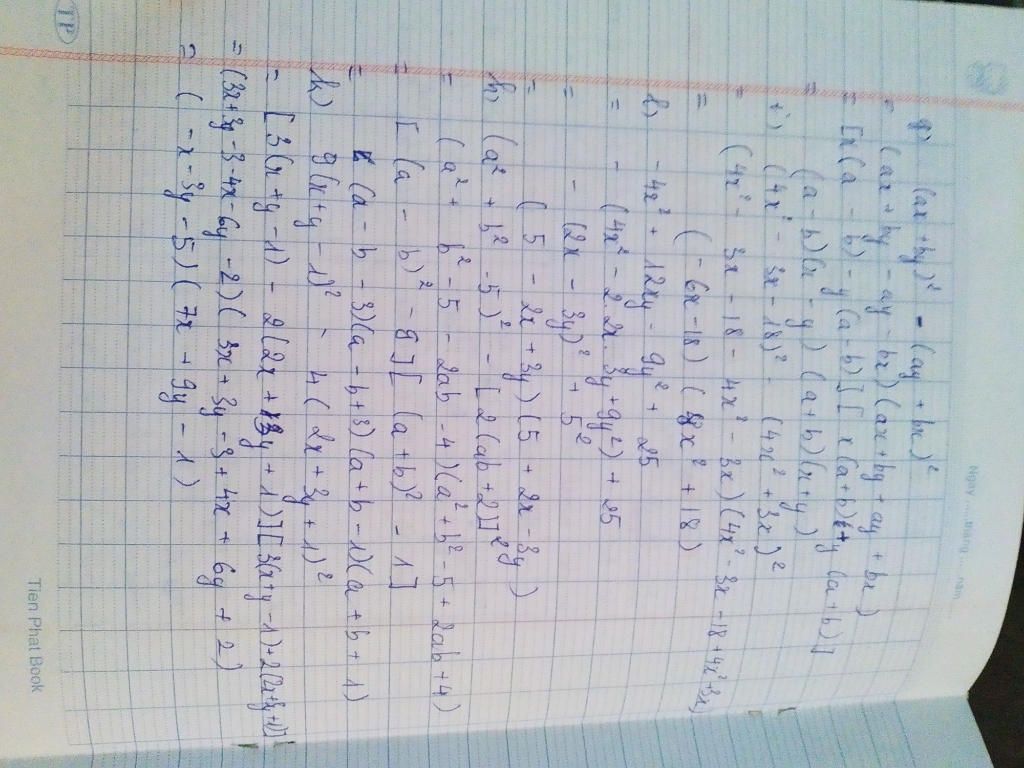 Ngày ........ tháng ........ năm ........
g) (ax + by)² - (ay + bx)²
= (ax + by - ay - bx)(ax + by + ay + bx)
= [x(a - b) - y(a - b)][x(a + b) + y(a + b)]
= (a - b)(x - y)(a + b)(x + y)
i) (4x² - 3x - 18)² - (4x² + 3x)²
= (4x² - 3x - 18 - 4x² - 3x)(4x² - 3x - 18 + 4x² + 3x)
= (- 6x - 18)(8x² + 18)
l) - 4x² + 12xy - 9y² + 25
= - (4x² - 2.2x.3y + 9y²) + 25
= - (2x - 3y)² + 5²
= (5 - 2x + 3y)(5 + 2x - 3y)
h) (a² + b² - 5)² - [2(ab + 2)]²
= (a² + b² - 5 - 2ab - 4)(a² + b² - 5 + 2ab + 4)
= [(a - b)² - 9][(a + b)² - 1]
= (a - b - 3)(a - b + 3)(a + b - 1)(a + b + 1)
k) 9(x + y - 1)² - 4(2x + 3y + 1)²
= [3(x + y - 1) - 2(2x + 3y + 1)][3(x + y - 1) + 2(2x + 3y + 1)]
= (3x + 3y - 3 - 4x - 6y - 2)(3x + 3y - 3 + 4x + 6y + 2)
= (- x - 3y - 5)(7x + 9y - 1)
TP
Tien Phat Book